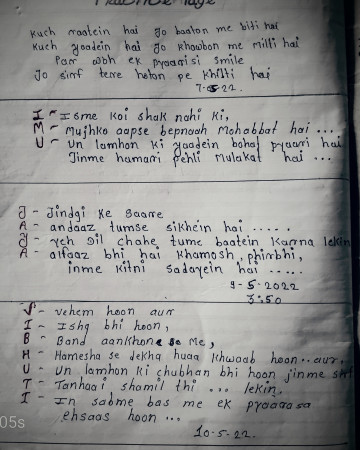 Kuch raatein hai jo baaton me biti hai
Kuch yaadein hai jo khawbon me milli hai
Parr woh ek pyaarisi smile
Jo sirf tere hoton pe khilti hai
7-5-22.
I - Isme koi shak nahi ki,
M - Mujhko aapse bepnaah mohabbat hai ...
U - Un lamhon ki yaadein bohat pyaari hai
Jinme hamari pehli mulakat hai ...
J - Jindgi ke saare
A - andaaz tumse sikhein hai ......
Y - yeh dil chahe tume baatein karna lekin
A - alfaaz bhi hai khamosh, phirbhi,
inme kitni sadayein hai ......
9-5-2022
3:50
V - vehem hoon aur
I - Ishq bhi hoon,
B - Band aankhone se me,
H - Hamesha se dekha huaa khwaab hoon.. aur,
U - Un lamhon ki chubhan bhi hoon jinme sirf
T - Tanhaai shamil thi ... lekin,
I - In sabme bas me ek pyaaraasa
ehsaas hoon ...
05s
10-5-22.